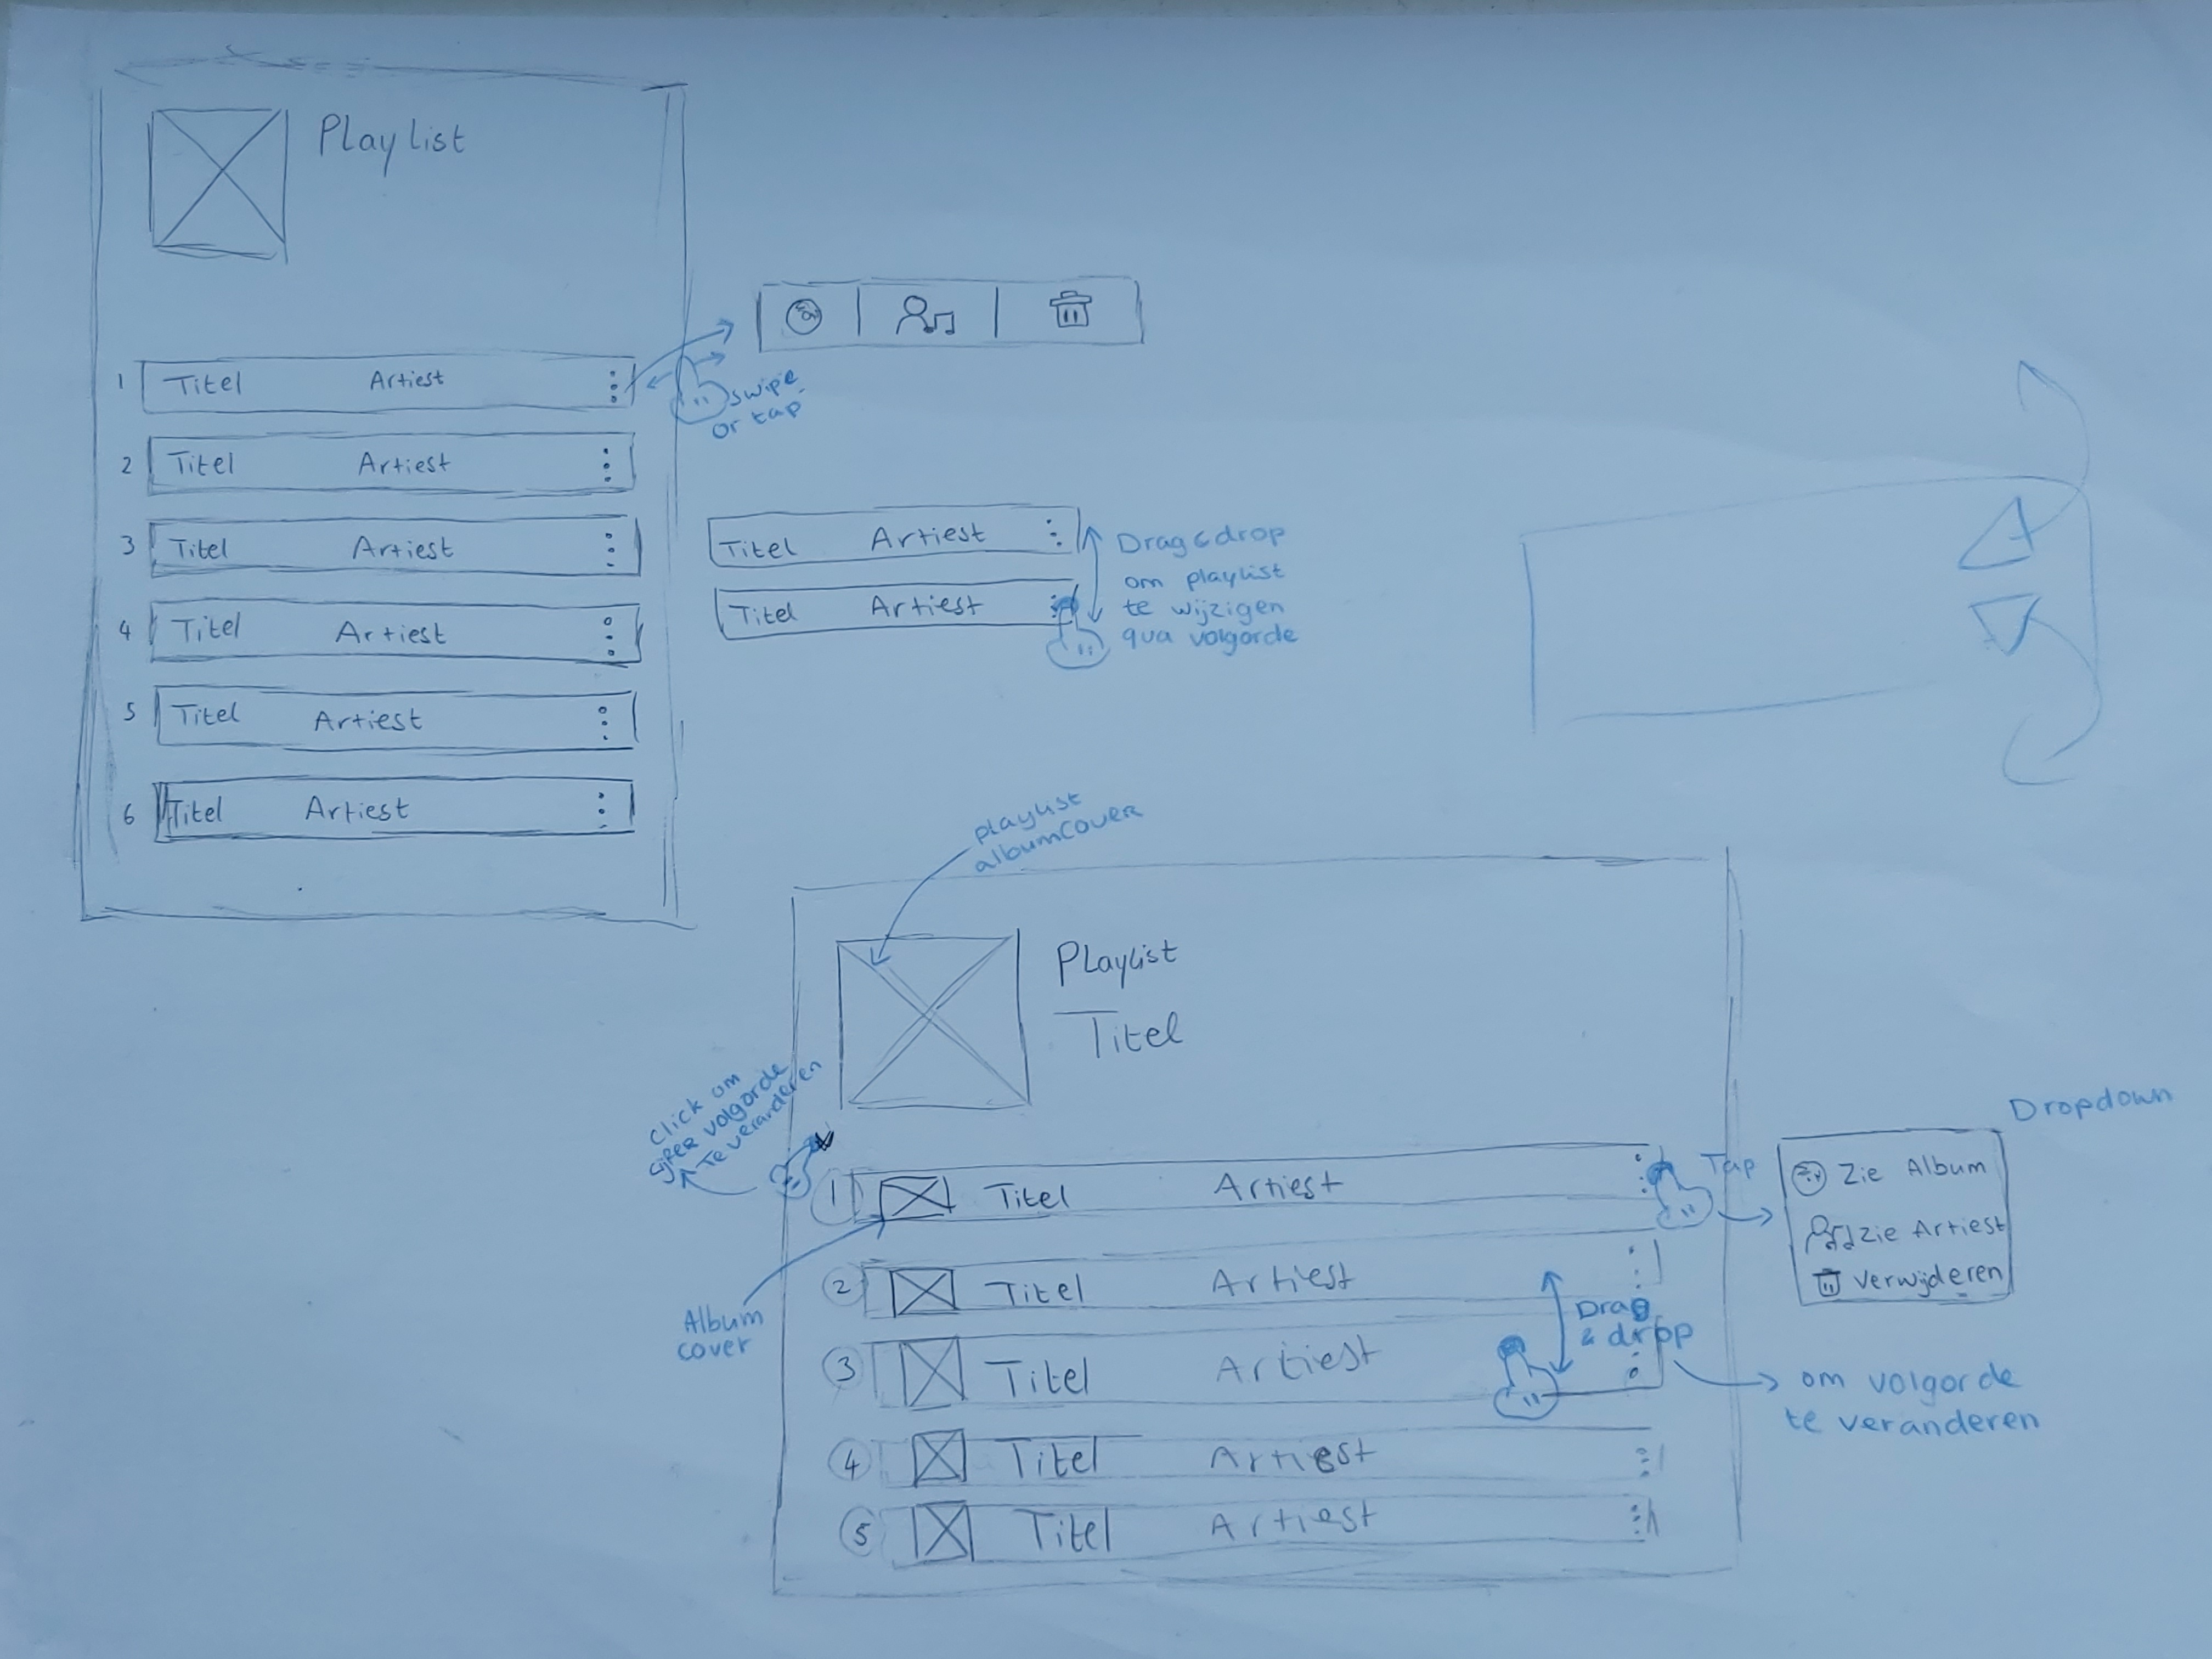 Playlist
1 Titel Artiest
2 Titel Artiest
3 Titel Artiest
4 Titel Artiest
5 Titel Artiest
6 Titel Artiest
swipe
or tap
Titel Artiest
Titel Artiest
Drag & drop
om playlist
te wijzigen
qua volgorde
playlist
albumcover
Playlist
Titel
click om
cijfer volgorde
te veranderen
Album
cover
1 Titel Artiest
2 Titel Artiest
3 Titel Artiest
4 Titel Artiest
5 Titel Artiest
Tap
Drag
& drop
om volgorde
te veranderen
Dropdown
Zie Album
Zie Artiest
verwijderen